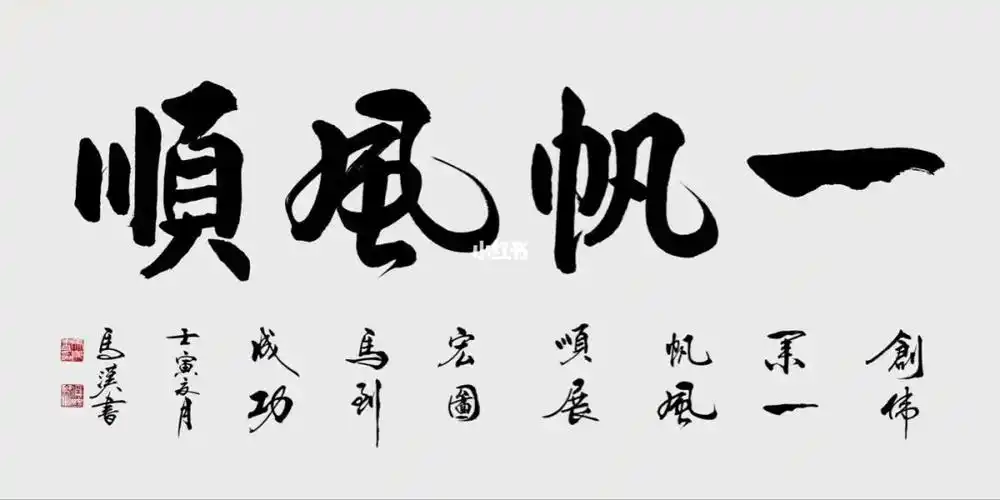 一帆風順
小红书
創伟
業一
帆風
順展
宏圖
馬到
成功
壬寅夏月
馬溪書